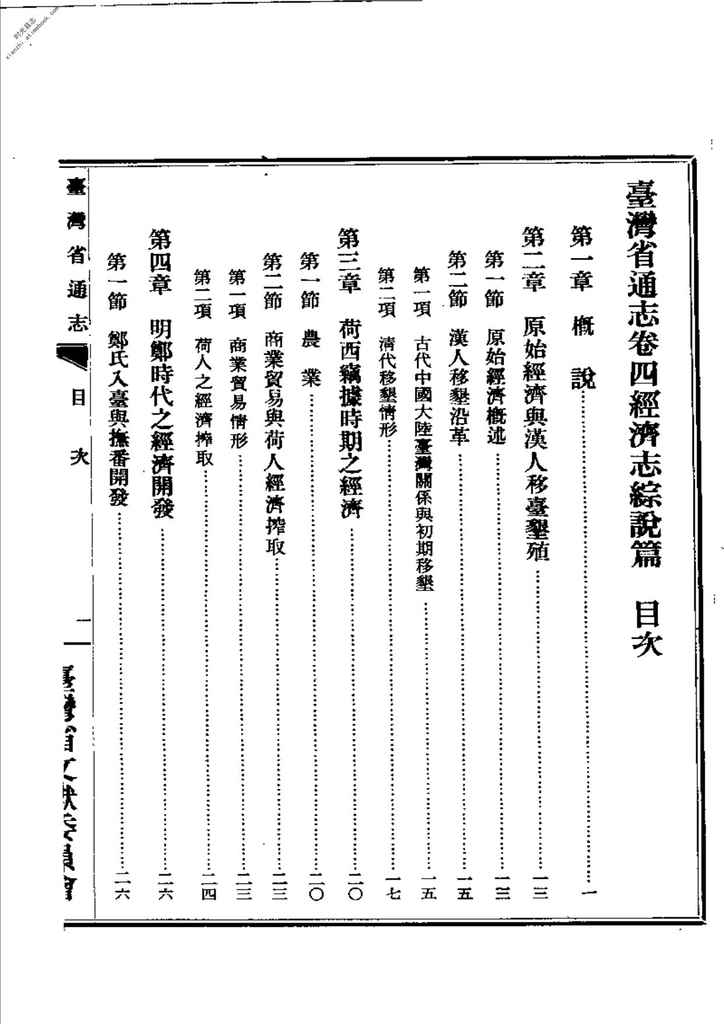 臺灣省通志卷四經濟志綜說篇　目次
第一章　概　說……一
第二章　原始經濟與漢人移臺墾殖……一三
第一節　原始經濟概述……一三
第二節　漢人移墾沿革……一五
第一項　古代中國大陸臺灣關係與初期移墾……一五
第二項　清代移墾情形……一七
第三章　荷西竊據時期之經濟……二〇
第一節　農　業……二〇
第二節　商業貿易與荷人經濟搾取……二三
第一項　商業貿易情形……二三
第二項　荷人之經濟搾取……二四
第四章　明鄭時代之經濟開發……二六
第一節　鄭氏入臺與撫番開發……二六
臺灣省通志　目　次　一
臺灣省文獻委員會